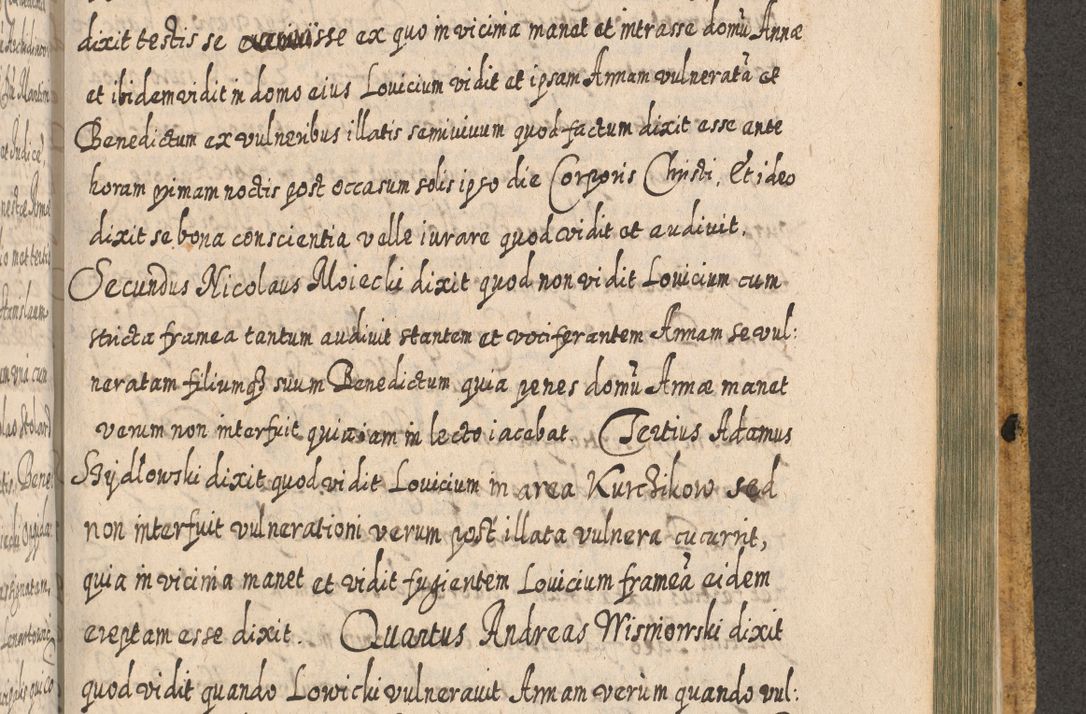 dixit testis se exivisse ex quo in vicina manet et intrasse domũ Annæ
et ibidem vidit in domo eius Lovicium vidit et ipsam Annam vulneratã et
Benedictum ex vulneribus illatis semivivum quod factum dixit esse ante
horam primam noctis post occasum solis ipso die Corporis Christi, Et ideo
dixit se bona conscientia velle iurare quod vidit et audivit.
Secundus Nicolaus Moiecki dixit quod non vidit Lovicium cum
stricta framea tantum audivit stantem et vociferantem Annam se vul:
neratam filiumqȝ suum Benedictum quia penes domũ Annæ manet
verum non interfuit quia iam in lecto iacebat. Tertius Adamus
Szydłowski dixit quod vidit Lovicium in area Kurczikow sed
non interfuit vulnerationi verum post illata vulnera cucurrit,
quia in vicinia manet et vidit fugientem Lovicium frameã eidem
ereptam esse dixit. Quartus Andreas Wismowski dixit
quod vidit quando Lowicki vulneravit Annam verùm quando vul: